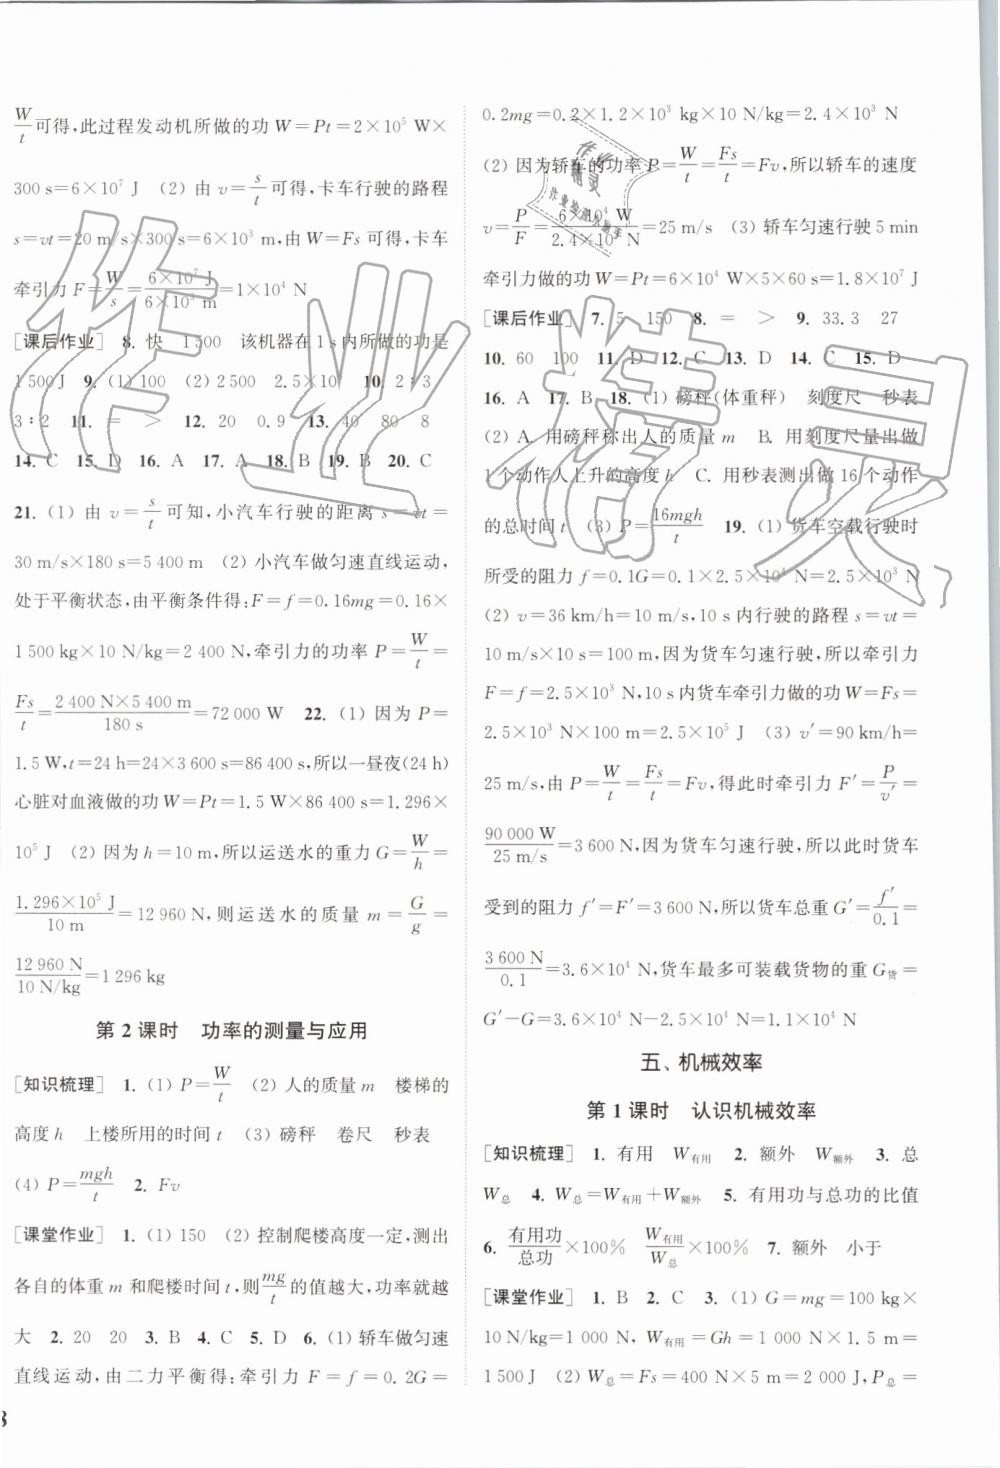 W/t 可得,此过程发动机所做的功 W=Pt=2×10⁵ W×
300 s=6×10⁷ J (2) 由 v=s/t 可得,卡车行驶的路程
s=vt=20 m/s×300 s=6×10³ m,由 W=Fs 可得,卡车
牵引力 F=W/s=6×10⁷ J/6×10³ m=1×10⁴ N
[课后作业] 8. 快 1 500 该机器在 1 s 内所做的功是
1 500 J 9. (1) 100 (2) 2 500 2.5×10⁵ 10. 2∶3
3∶2 11. = > 12. 20 0.9 13. 40 80 8
14. C 15. D 16. A 17. A 18. B 19. B 20. C
21. (1) 由 v=s/t 可知,小汽车行驶的距离 s=vt=
30 m/s×180 s=5 400 m (2) 小汽车做匀速直线运动,
处于平衡状态,由平衡条件得:F=f=0.16mg=0.16×
1 500 kg×10 N/kg=2 400 N,牵引力的功率 P=W/t=
Fs/t=2 400 N×5 400 m/180 s=72 000 W 22. (1) 因为 P=
1.5 W,t=24 h=24×3 600 s=86 400 s,所以一昼夜(24 h)
心脏对血液做的功 W=Pt=1.5 W×86 400 s=1.296×
10⁵ J (2) 因为 h=10 m,所以运送水的重力 G=W/h=
1.296×10⁵ J/10 m=12 960 N,则运送水的质量 m=G/g=
12 960 N/10 N/kg=1 296 kg
第 2 课时 功率的测量与应用
[知识梳理] 1. (1) P=W/t (2) 人的质量 m 楼梯的
高度 h 上楼所用的时间 t (3) 磅秤 卷尺 秒表
(4) P=mgh/t 2. Fv
[课堂作业] 1. (1) 150 (2) 控制爬楼高度一定,测出
各自的体重 m 和爬楼时间 t,则 mg/t 的值越大,功率就越
大 2. 20 20 3. B 4. C 5. D 6. (1) 轿车做匀速
直线运动,由二力平衡得:牵引力 F=f=0.2G=
0.2mg=0.2×1.2×10³ kg×10 N/kg=2.4×10³ N
(2) 因为轿车的功率 P=W/t=Fs/t=Fv,所以轿车的速度
v=P/F=6×10⁴ W/2.4×10³ N=25 m/s (3) 轿车匀速行驶 5 min
牵引力做的功 W=Pt=6×10⁴ W×5×60 s=1.8×10⁷ J
[课后作业] 7. 5 150 8. = > 9. 33.3 27
10. 60 100 11. D 12. C 13. D 14. C 15. D
16. A 17. B 18. (1) 磅秤(体重秤) 刻度尺 秒表
(2) A. 用磅秤称出人的质量 m B. 用刻度尺量出做
1 个动作人上升的高度 h C. 用秒表测出做 16 个动作
的总时间 t (3) P=16mgh/t 19. (1) 货车空载行驶时
所受的阻力 f=0.1G=0.1×2.5×10⁴ N=2.5×10³ N
(2) v=36 km/h=10 m/s,10 s 内行驶的路程 s=vt=
10 m/s×10 s=100 m,因为货车匀速行驶,所以牵引力
F=f=2.5×10³ N,10 s 内货车牵引力做的功 W=Fs=
2.5×10³ N×100 m=2.5×10⁵ J (3) v′=90 km/h=
25 m/s,由 P=W/t=Fs/t=Fv,得此时牵引力 F′=P/v′=
90 000 W/25 m/s=3 600 N,因为货车匀速行驶,所以此时货车
受到的阻力 f′=F′=3 600 N,所以货车总重 G′=f′/0.1=
3 600 N/0.1=3.6×10⁴ N,货车最多可装载货物的重 G货=
G′-G=3.6×10⁴ N-2.5×10⁴ N=1.1×10⁴ N
五、机械效率
第 1 课时 认识机械效率
[知识梳理] 1. 有用 W有用 2. 额外 W额外 3. 总
W总 4. W总=W有用+W额外 5. 有用功与总功的比值
6. 有用功/总功×100% W有用/W总×100% 7. 额外 小于
[课堂作业] 1. B 2. C 3. (1) G=mg=100 kg×
10 N/kg=1 000 N, W有用=Gh=1 000 N×1.5 m=
1 500 J (2) W总=Fs=400 N×5 m=2 000 J,P总=
作业精灵
作业精灵